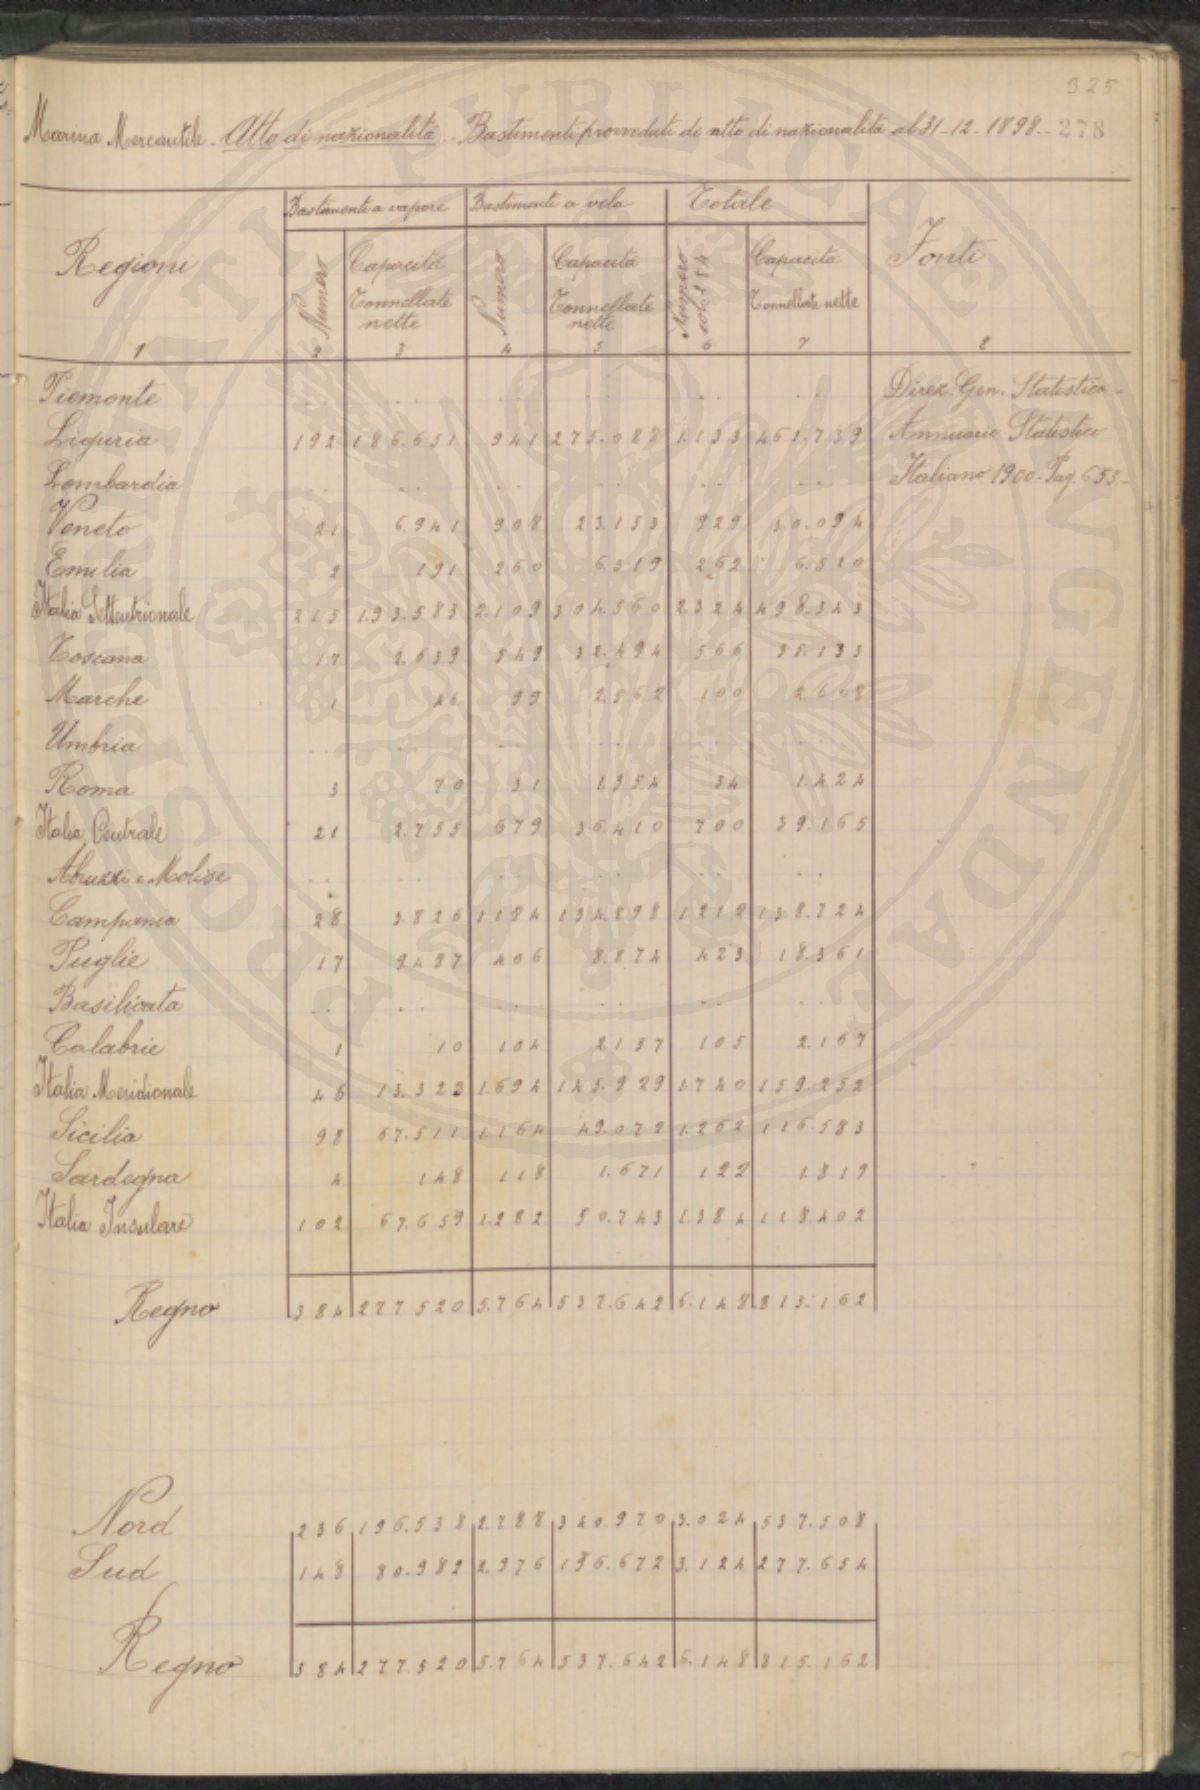 325
Marina Mercantile - Atto di nazionalità - Bastimenti provveduti di atto di nazionalità al 31-12-1898 - 278
Bastimenti a vapore Bastimenti a vela Totale
Regioni Numero Capacità Tonnellate nette Numero Capacità Tonnellate nette Numero col. 2 e 4 Capacità Tonnellate nette Fonti
1 2 3 4 5 6 7 8
Piemonte .. .. .. .. .. .. Direz. Gen. Statistica -
Liguria 192 186.651 941 275.088 1.133 461.739 Annuario Statistico
Lombardia .. .. .. .. .. .. Italiano 1900 - Pag. 653 -
Veneto 21 6941 908 23.153 929 30.094
Emilia 2 191 260 6.319 262 6.510
Italia Settentrionale 215 193.783 2.109 304.560 2324 498.343
Toscana 17 2.639 549 32.494 566 35.133
Marche 1 46 99 2.562 100 2.608
Umbria .. .. .. .. .. ..
Roma 3 70 31 1.354 34 1.424
Italia Centrale 21 2.755 679 36.410 700 39.165
Abruzzi e Molise .. .. .. .. .. ..
Campania 28 3.826 1.184 134.898 1.212 138.724
Puglie 17 9487 406 8.874 423 18.361
Basilicata .. .. .. .. .. ..
Calabrie 1 10 104 2157 105 2.167
Italia Meridionale 46 13.323 1.694 145.929 1.740 159.252
Sicilia 98 67.511 1.164 49.072 1.262 116.583
Sardegna 4 148 118 1.671 122 1.819
Italia Insulare 102 67.659 1.282 50.743 1.384 118.402
Regno 384 277.520 5.764 537.642 6.148 815.162
Nord 236 196.538 2.788 340.970 3.024 537.508
Sud 148 80.982 2.976 196.672 3.124 277.654
Regno 384 277.520 5.764 537.642 6.148 815.162